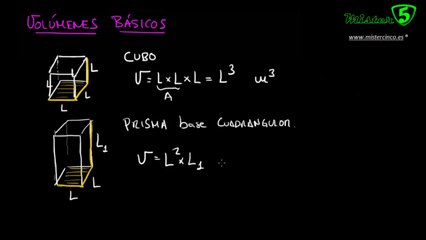 VOLÚMENES BÁSICOS
Mister 5
www.mistercinco.es
CUBO
V = L x L x L = L³ m³
A
L
L
L
L
PRISMA base CUADRANGULAR
V = L² x L₁
L₁
L
L